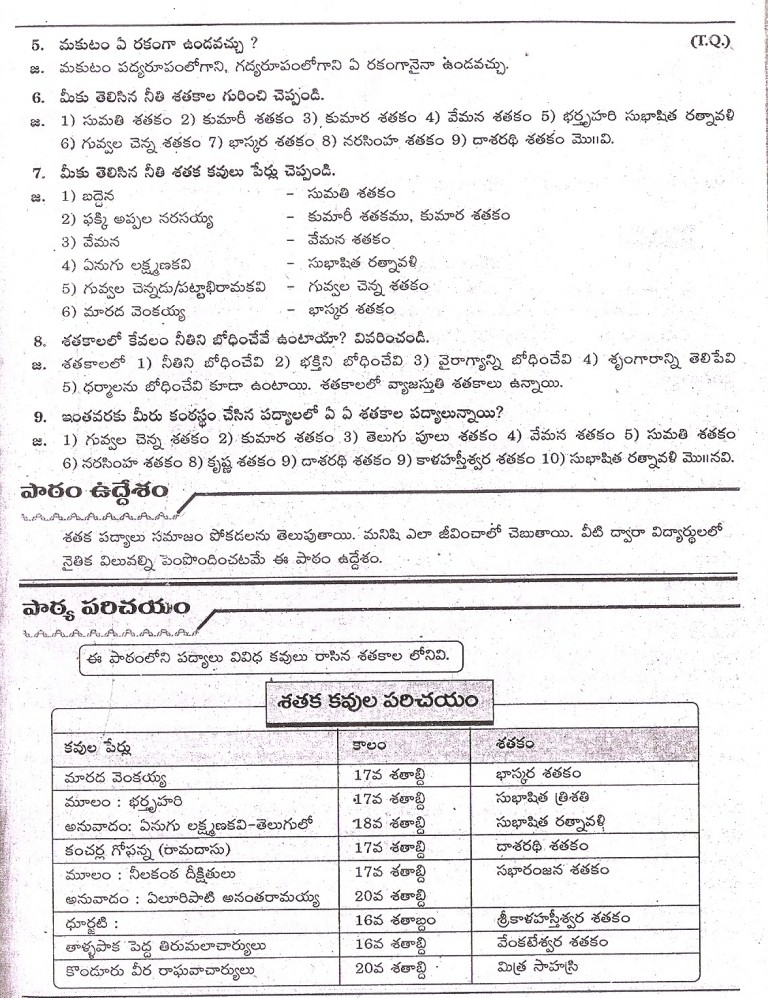 5. మకుటం ఏ రకంగా ఉండవచ్చు ? (T.Q.)
జ. మకుటం పద్యరూపంలోగాని, గద్యరూపంలోగాని ఏ రకంగానైనా ఉండవచ్చు.
6. మీకు తెలిసిన నీతి శతకాల గురించి చెప్పండి.
జ. 1) సుమతి శతకం 2) కుమారీ శతకం 3) కుమార శతకం 4) వేమన శతకం 5) భర్తృహరి సుభాషిత రత్నావళి
6) గువ్వల చెన్న శతకం 7) భాస్కర శతకం 8) నరసింహ శతకం 9) దాశరథి శతకం మొ॥వి.
7. మీకు తెలిసిన నీతి శతక కవులు పేర్లు చెప్పండి.
జ. 1) బద్దెన – సుమతి శతకం
2) ఫక్కి అప్పల నరసయ్య – కుమారీ శతకము, కుమార శతకం
3) వేమన – వేమన శతకం
4) ఏనుగు లక్ష్మణకవి – సుభాషిత రత్నావళి
5) గువ్వల చెన్నడు/పట్టాభిరామకవి – గువ్వల చెన్న శతకం
6) మారద వెంకయ్య – భాస్కర శతకం
8. శతకాలలో కేవలం నీతిని బోధించేవే ఉంటాయా? వివరించండి.
జ. శతకాలలో 1) నీతిని బోధించేవి 2) భక్తిని బోధించేవి 3) వైరాగ్యాన్ని బోధించేవి 4) శృంగారాన్ని తెలిపేవి
5) ధర్మాలను బోధించేవి కూడా ఉంటాయి. శతకాలలో వ్యాజస్తుతి శతకాలు ఉన్నాయి.
9. ఇంతవరకు మీరు కంఠస్థం చేసిన పద్యాలలో ఏ ఏ శతకాల పద్యాలున్నాయి?
జ. 1) గువ్వల చెన్న శతకం 2) కుమార శతకం 3) తెలుగు పూలు శతకం 4) వేమన శతకం 5) సుమతి శతకం
6) నరసింహ శతకం 8) కృష్ణ శతకం 9) దాశరథి శతకం 9) కాళహస్తీశ్వర శతకం 10) సుభాషిత రత్నావళి మొ॥నవి.
పాఠం ఉద్దేశం
శతక పద్యాలు సమాజం పోకడలను తెలుపుతాయి. మనిషి ఎలా జీవించాలో చెబుతాయి. వీటి ద్వారా విద్యార్థులలో
నైతిక విలువల్ని పెంపొందించటమే ఈ పాఠం ఉద్దేశం.
పాఠ్య పరిచయం
ఈ పాఠంలోని పద్యాలు వివిధ కవులు రాసిన శతకాల లోనివి.
శతక కవుల పరిచయం
కవుల పేర్లు కాలం శతకం
మారద వెంకయ్య 17వ శతాబ్ది భాస్కర శతకం
మూలం : భర్తృహరి 17వ శతాబ్ది సుభాషిత త్రిశతి
అనువాదం: ఏనుగు లక్ష్మణకవి-తెలుగులో 18వ శతాబ్ది సుభాషిత రత్నావళి
కంచర్ల గోపన్న (రామదాసు) 17వ శతాబ్ది దాశరథి శతకం
మూలం : నీలకంఠ దీక్షితులు 17వ శతాబ్ది సభారంజన శతకం
అనువాదం : ఏలూరిపాటి అనంతరామయ్య 20వ శతాబ్ది
ధూర్జటి : 16వ శతాబ్దం శ్రీకాళహస్తీశ్వర శతకం
తాళ్ళపాక పెద్ద తిరుమలాచార్యులు 16వ శతాబ్ది వేంకటేశ్వర శతకం
కొండూరు వీర రాఘవాచార్యులు 20వ శతాబ్ది మిత్ర సాహస్రి